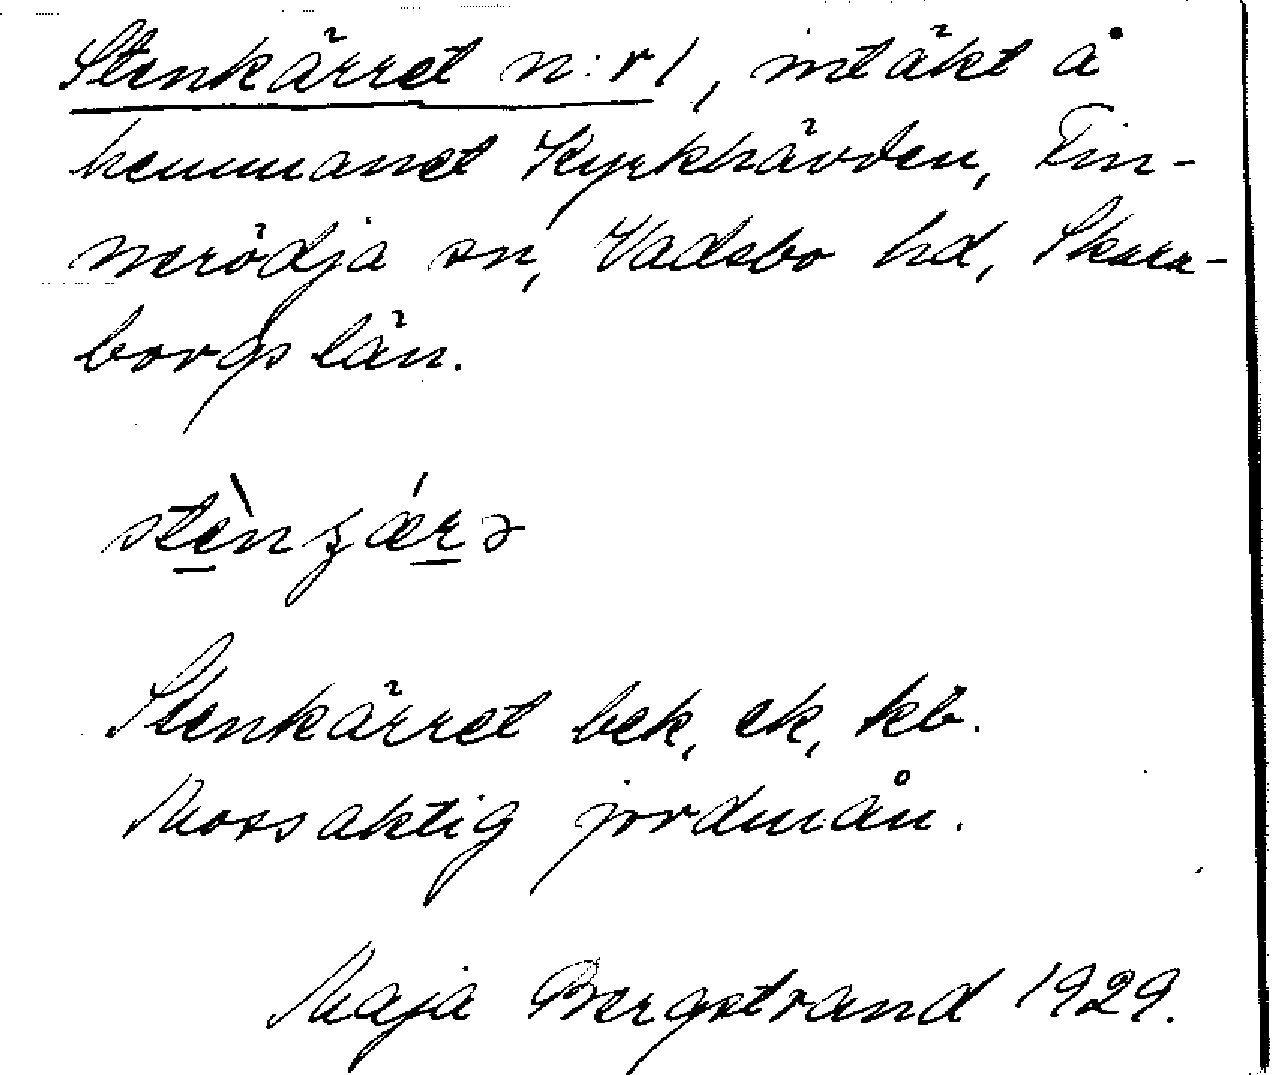 Stenkärret n:r 1, intäkt å
hemmanet Kyrkhävden, Fin-
nerödja sn, Vadsbo hd, Skara-
borgs län.
Stenkärret bek, ek, kb.
Mossaktig jordmån.
Maja Bergstrand 1929.